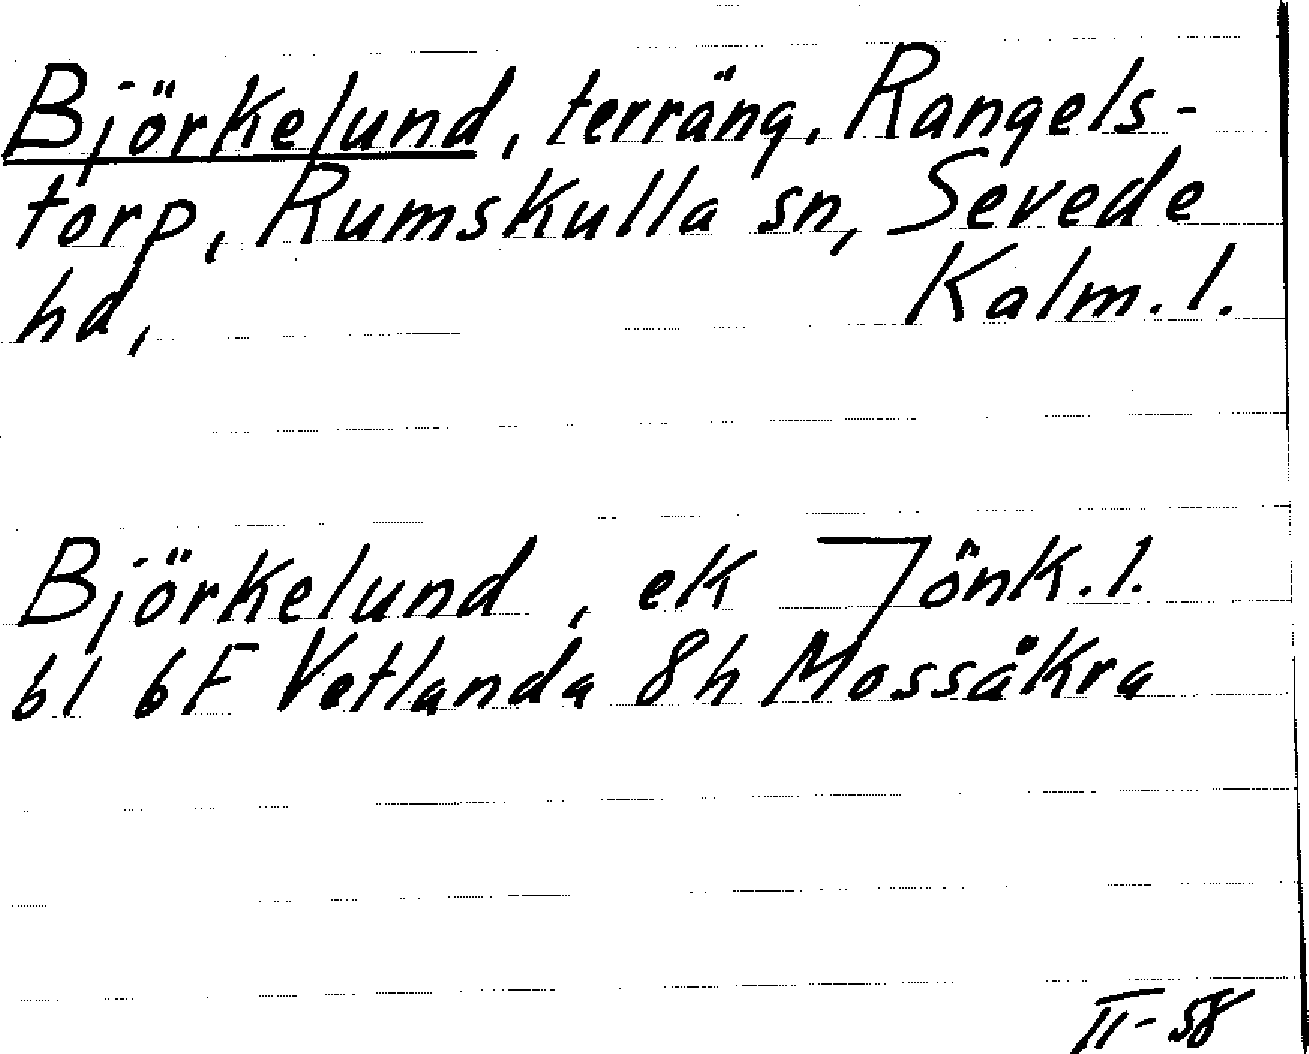 Björkelund, terräng, Rangels-
torp, Rumskulla sn, Sevede
hd, Kalm. l.
Björkelund, ek Jönk. l.
bl 6F Vetlanda 8h Mossåkra
II-58